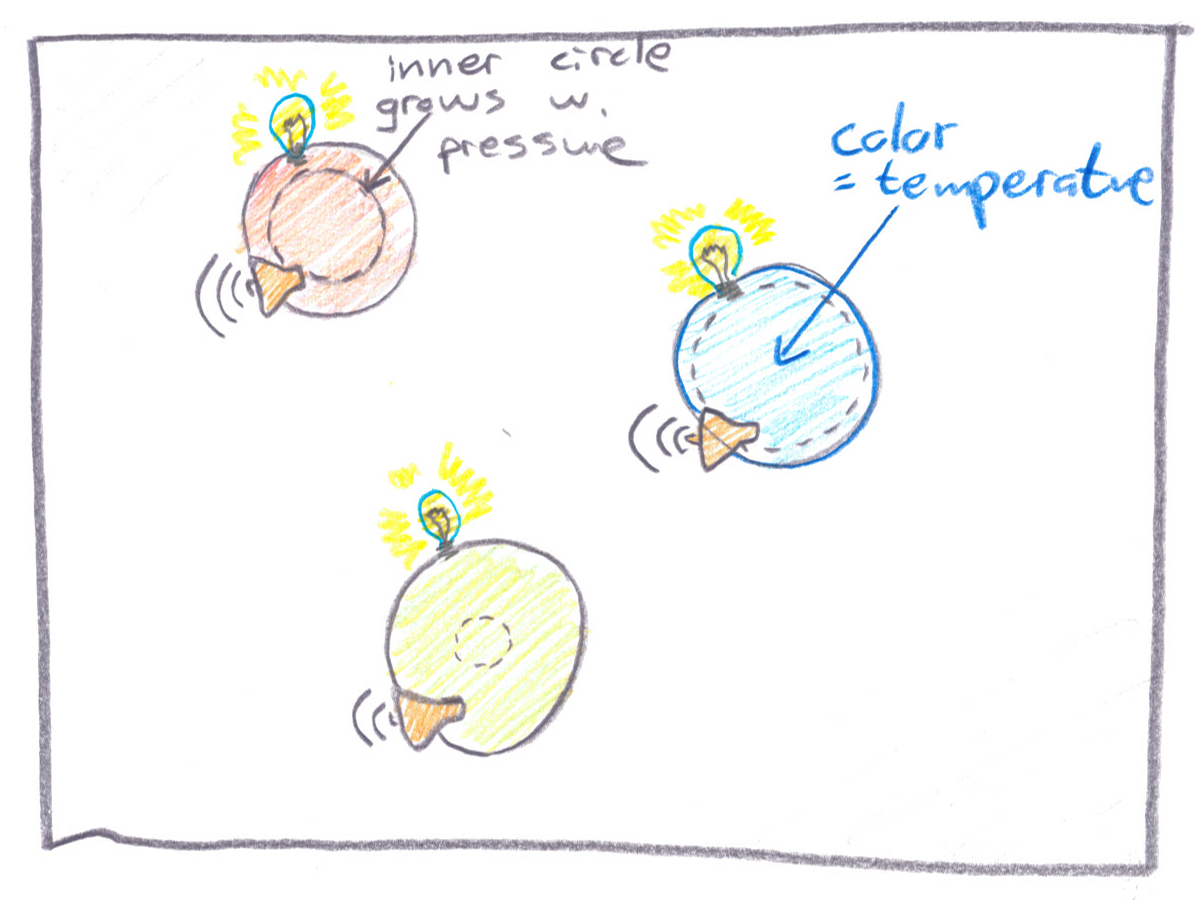 inner circle
grows w.
pressure
color
= temperature